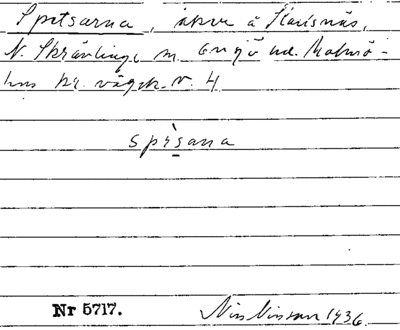 Spetsarna, åkrar å Flavisnäs,
N. Skrävlinge sn. Oxie hd. Malmö-
hus kr. vägsk. V. 4
spìsana
Nr 5717. Nils Nilsson 1936.